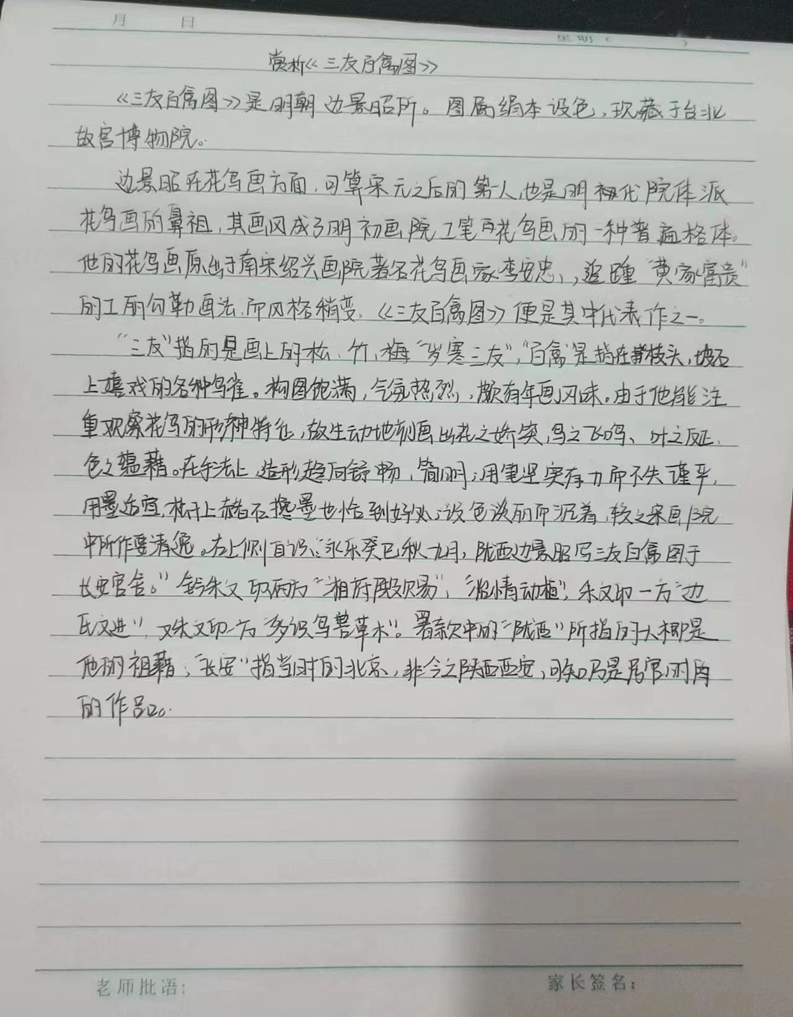 月 日
星期( )
赏析《三友百禽图》
《三友百禽图》是明朝边景昭所。图属绢本设色,现藏于台北
故宫博物院。
边景昭在花鸟画方面,可算宋元之后的第一人,也是明初代院体派
花鸟画的鼻祖,其画风成了明初画院工笔花鸟画的一种普遍格体。
他的花鸟画原出于南宋绍兴画院著名花鸟画家李安忠,追踵“黄家富贵”
的工丽勾勒画法,而风格稍变,《三友百禽图》便是其中代表作之一。
“三友”指的是画上的松、竹、梅“岁寒三友”,“百禽”是指在枝头,坡石
上嬉戏的各种鸟雀。构图饱满,气氛热烈,颇有年画风味。由于他能注
重观察花鸟的形神特征,故生动地刻画出花之娇笑,鸟之飞鸣、叶之反正、
色之蕴藉。在手法上造形趋向舒畅,简明;用笔坚实有力而不失谨平,
用墨适宜,松干上赭石搀墨也恰到好处;设色淡丽而沉着,较之宋画院
中所作要清逸。右上侧自识:“永乐癸巳秋九月,陇西边景昭写三友百禽图于
长安官舍。”钤朱文印两方“湘府殿赐”,“怡情动植”,朱文印一方“边
氏文进”,又朱文印一方“多识鸟兽草木”。署款中的“陇西”所指的大概是
他的祖籍,“长安”指当时的北京,非今之陕西西安,可知乃是居官时
的作品。
老师批语:
家长签名: